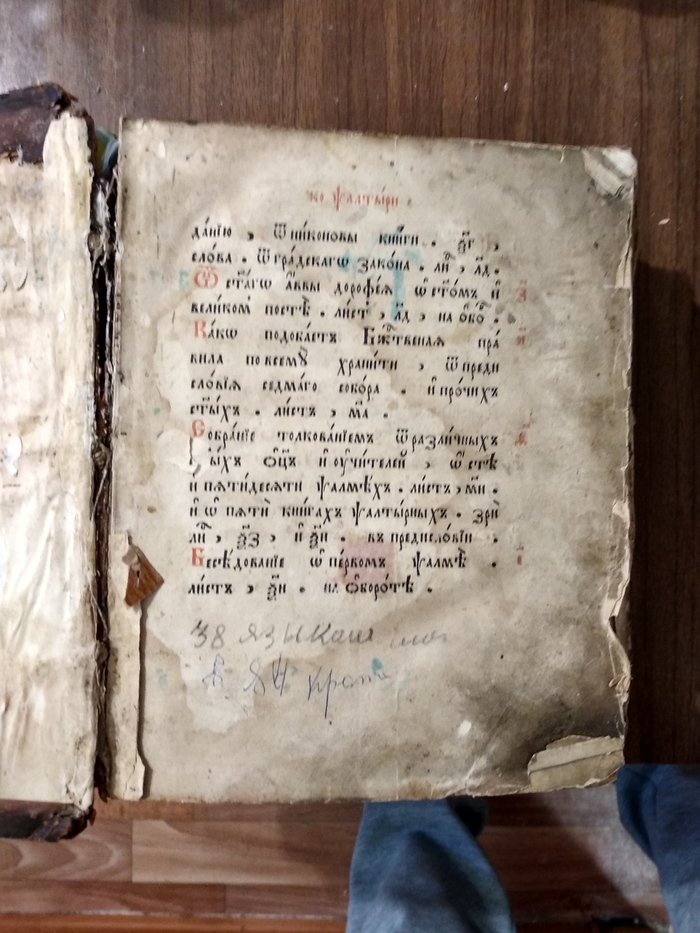 ко ѱалты́ри .
да́нїю , ѿ ни́коновы кни́ги . ѯ҃г ,
сло́ва . ѿ гра́дскагѡ зако́на . ли̑ , л҃д .
Ѿ ст҃а́гѡ а҆́ввы дороѳе́а ѡ҆ ст҃о́мъ и҆ з҃
вели́комъ посте̑ . ли́стъ , л҃д , на ѻ҆бо̑ .
Ка́кѡ подоба́етъ Бж҃е́ственаѧ пра́ и҃
вила по всемꙋ̀ храни́ти , ѿ преди
сло́вїѧ седма́го собо́ра . и҆ про́чихъ
ст҃ы́хъ . ли́стъ , м҃а .
Собра́нїе толкова́нїемъ ѿ разли́чныхъ
ѻ҆ц҃ъ и҆ ᲂу҆чи́телей , ѡ҆ сте̑
и пѧти́десѧти ѱалмѣ́хъ . ли́стъ , м҃и .
и҆ ѡ҆ пѧтѝ кни́гахъ ѱалты́рныхъ . зрѝ
ли̑ , ѯ҃з , и҆ ѯ҃и . въ предисло́вїи .
Бесѣ́дованїе ѡ҆ пе́рвомъ ѱалмѣ̀ . і҃
ли́стъ , ѯ҃и . на ѻ҆боро́тѣ .
38 языкаш